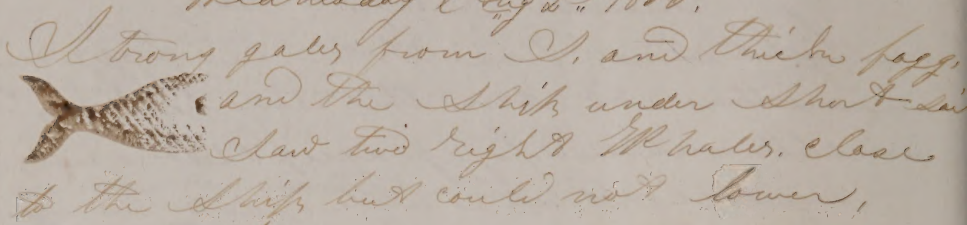 Wednesday Aug 2nd
Strong gales from S. and thick fogg.
and the Ship under Short sail
Saw two right Whales. close
to the Ship but could not lower,